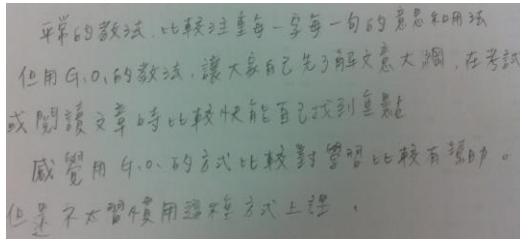 平常的教法,比較注重每一字每一句的意思和用法
但用G.O.的教法,讓大家自己先了解文意大綱,在考試
或閱讀文章時比較快能自己找到重點
感覺用G.O.的方式比較對學習比較有幫助。
但是不太習慣用這種方式上課。